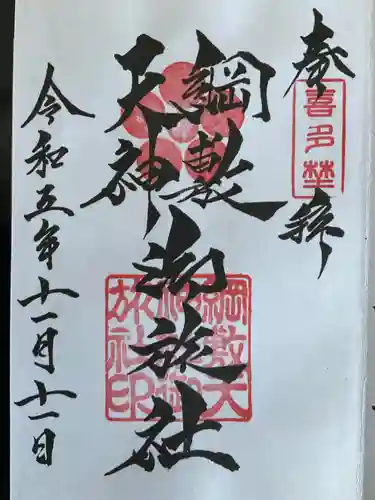 奉拝
喜多埜
綱敷
天神
御旅社
綱敷天
神御
旅社印
令和五年十一月十一日